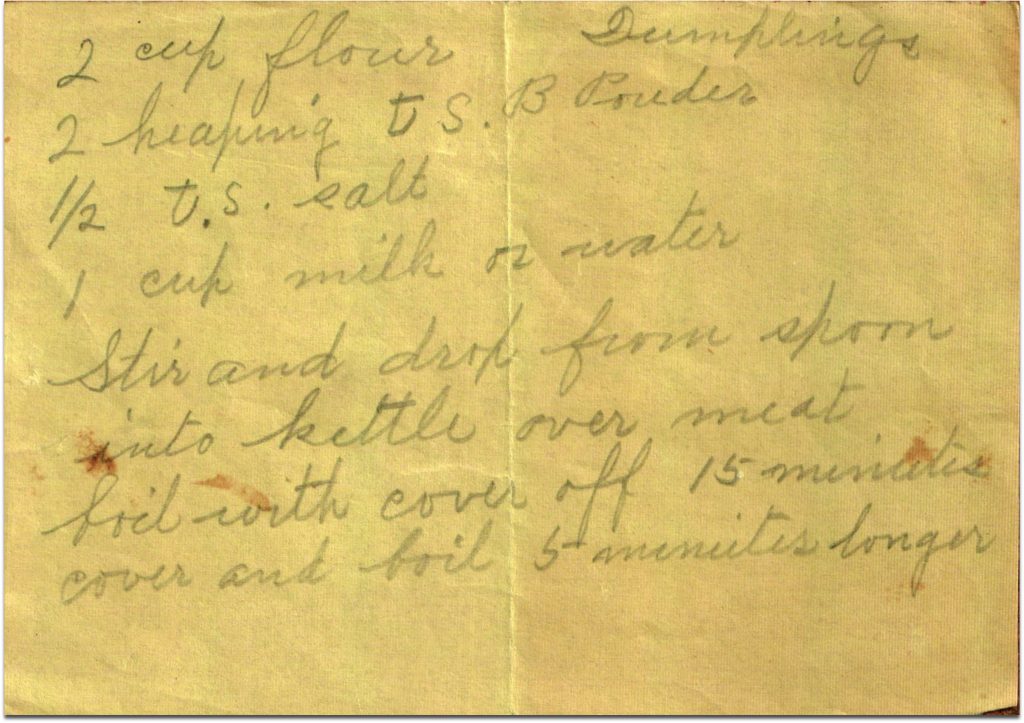 Dumplings
2 cup flour
2 heaping t S. B Powder
1/2 t.S. salt
1 cup milk or water
Stir and drop from spoon
into kettle over meat
boil with cover off 15 miniutes
cover and boil 5 miniutes longer